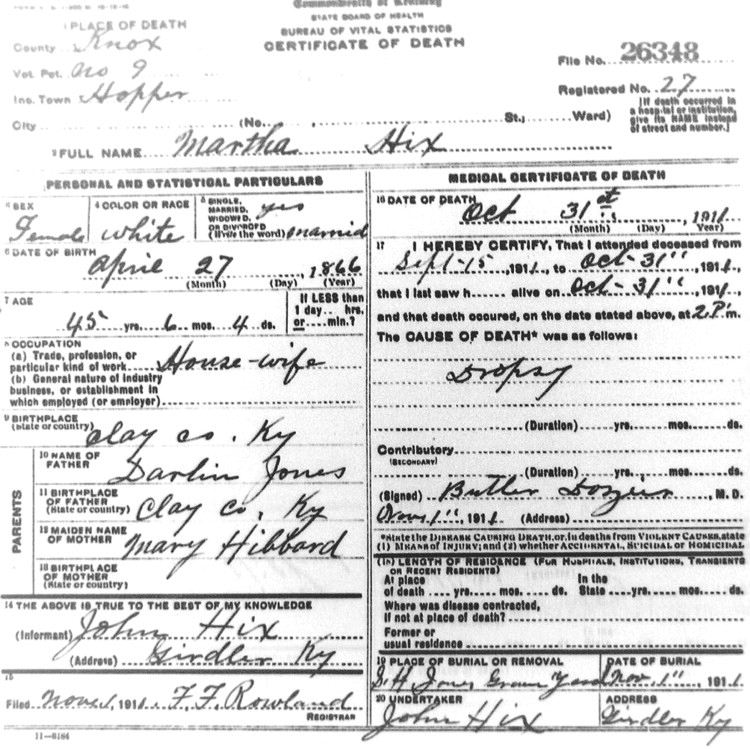 Commonwealth of Kentucky
STATE BOARD OF HEALTH
BUREAU OF VITAL STATISTICS
CERTIFICATE OF DEATH
1 PLACE OF DEATH
County Knox
Vot. Pct. No 9
Inc. Town Hopper
City (No. , St.; Ward)
File No. 26348
Registered No. 27
[If death occurred in a hospital or institution, give its NAME instead of street and number.]
2 FULL NAME Martha Hix
PERSONAL AND STATISTICAL PARTICULARS
3 SEX Female
4 COLOR OR RACE white
5 SINGLE, MARRIED, WIDOWED, OR DIVORCED (Write the word) yes married
6 DATE OF BIRTH April 27, 1866
(Month) (Day) (Year)
7 AGE 45 yrs. 6 mos. 4 ds.
If LESS than 1 day hrs. or min.?
8 OCCUPATION
(a) Trade, profession, or particular kind of work House-wife
(b) General nature of industry business, or establishment in which employed (or employer)
9 BIRTHPLACE (State or country) Clay co. Ky
PARENTS
10 NAME OF FATHER Darlin Jones
11 BIRTHPLACE OF FATHER (State or country) Clay co, Ky
12 MAIDEN NAME OF MOTHER Mary Hibbard
13 BIRTHPLACE OF MOTHER (State or country)
14 THE ABOVE IS TRUE TO THE BEST OF MY KNOWLEDGE
(Informant) John Hix
(Address) Girdler Ky
15
Filed Nov 1, 1911 F. F. Rowland
REGISTRAR
11-8184
MEDICAL CERTIFICATE OF DEATH
16 DATE OF DEATH Oct 31st, 1911
(Month) (Day) (Year)
17 I HEREBY CERTIFY, That I attended deceased from
Sept-15 1911, to Oct-31" 1911,
that I last saw h alive on Oct-31" 1911
and that death occured, on the date stated above, at 2 P.m.
The CAUSE OF DEATH* was as follows:
Dropsy
(Duration) yrs. mos. ds.
Contributory
(SECONDARY)
(Duration) yrs. mos. ds.
(Signed) Butler Dozier, M. D.
Nov 1" 1911 (Address)
*State the DISEASE CAUSING DEATH, or, in deaths from VIOLENT CAUSES, state
(1) MEANS OF INJURY; and (2) whether ACCIDENTAL, SUICIDAL or HOMICIDAL
18 LENGTH OF RESIDENCE (FOR HOSPITALS, INSTITUTIONS, TRANSIENTS OR RECENT RESIDENTS)
At place of death yrs. mos. ds. In the State yrs. mos. ds.
Where was disease contracted, If not at place of death?
Former or usual residence
19 PLACE OF BURIAL OR REMOVAL Jones Grave Yard
DATE OF BURIAL Nov. 1" 1911
20 UNDERTAKER John Hix
ADDRESS Girdler Ky